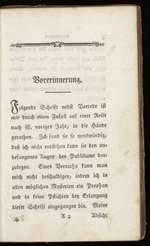 Vorerinnerung.
Folgende Schrift nebst Vorrede ist
mir durch einen Zufall auf einer Reise
nach W. voriges Jahr, in die Hände
gerathen. Ich fand sie so merkwürdig,
daß ich nicht verstehen kann sie den un-
befangenen Augen des Publikums dar-
zulegen. Eines Verraths kann man
mich nicht beschuldigen, indem ich in
allen möglichen Mysterien ein Prophan
und in keine Pflichten bey Erlangung
dieser Schrift eingegangen bin. Meine
A 2
Absicht